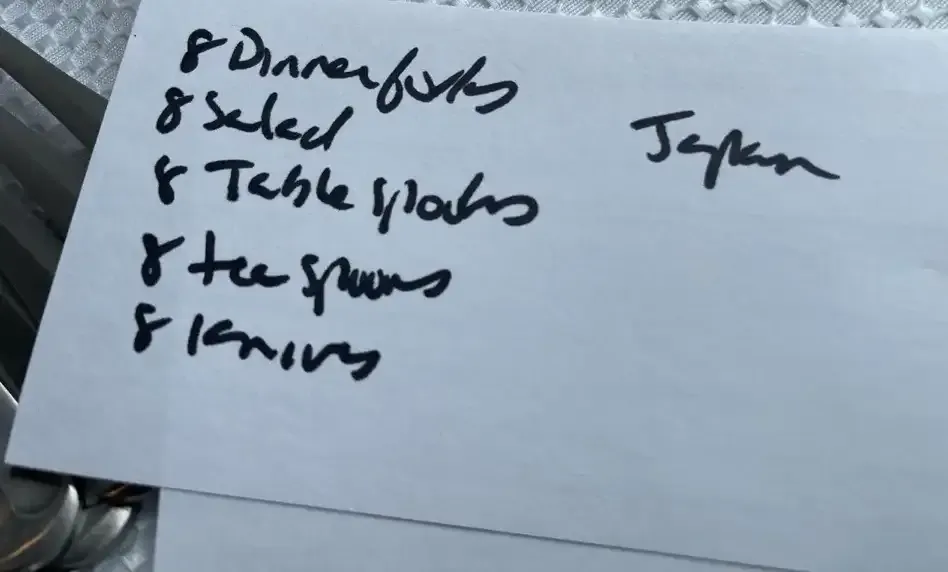 8 Dinner forks
8 Salad
8 Table spoons
8 tea spoons
8 knives
Japan